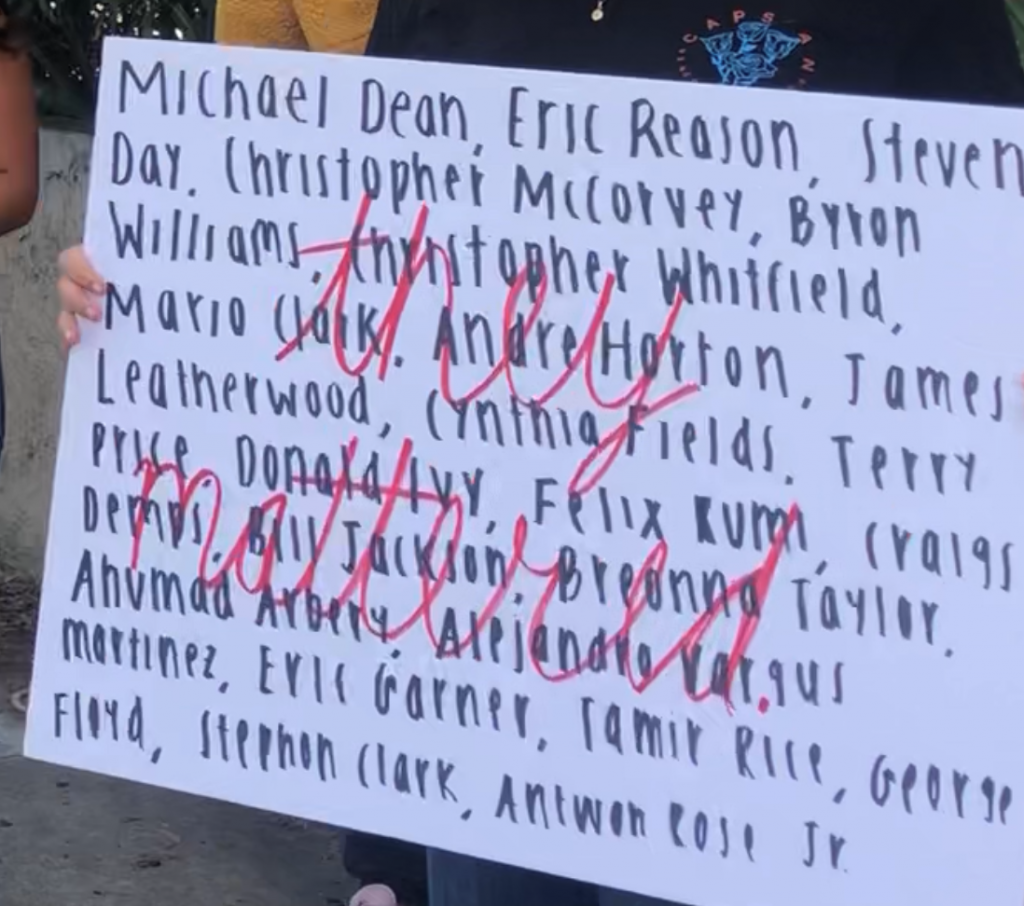 CAPS
Michael Dean, Eric Reason, Steven
Day. Christopher McCorvey, Byron
Williams, Christopher Whitfield,
Mario Clark. Andre Horton, James
Leatherwood, Cynthia Fields. Terry
Price, Donald Ivy, Felix Kumi, Craigs
Demps, Bill Jackson, Breonna Taylor.
Ahumad Arbery, Alejandro Vargus
martinez, Eric Garner, Tamir Rice, George
Floyd, Stephon Clark, Antwon Rose Jr.
they
mattered.